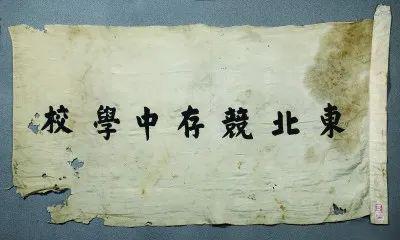 東北競存中學校